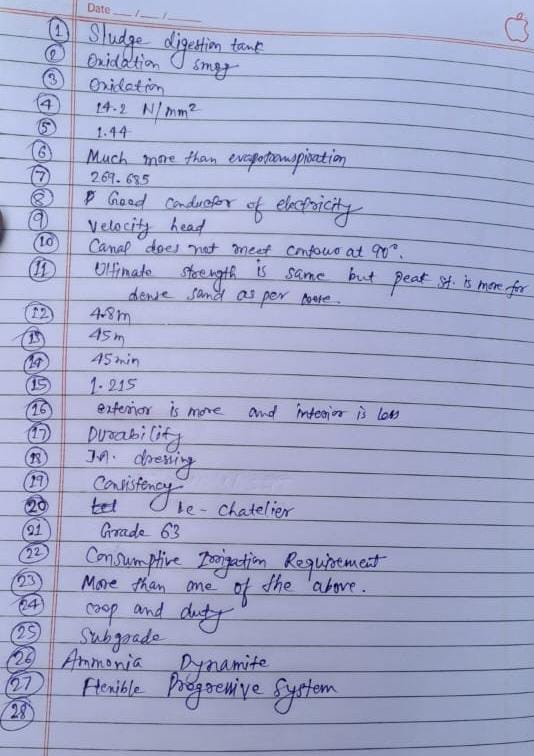 Date __/__/__
1 Sludge digestion tank
2 Oxidation smog
3 Oxidation
4 14.2 N/mm²
5 1.44
6 Much more than evapotranspiration
7 269.685
8 Good conductor of electricity
9 Velocity head
10 Canal does not meet contour at 90°.
11 Ultimate strength is same but peak st. is more for
dense sand as per loose.
12 4.8m
13 45m
14 45min
15 1.215
16 exterior is more and interior is less
17 Durability
18 dressing
19 Consistency
20 le-chatelier
21 Grade 63
22 Consumptive Irrigation Requirement
23 More than one of the above.
24 crop and duty
25 Subgrade
26 Ammonia Dynamite
27 Flexible Progressive System
28